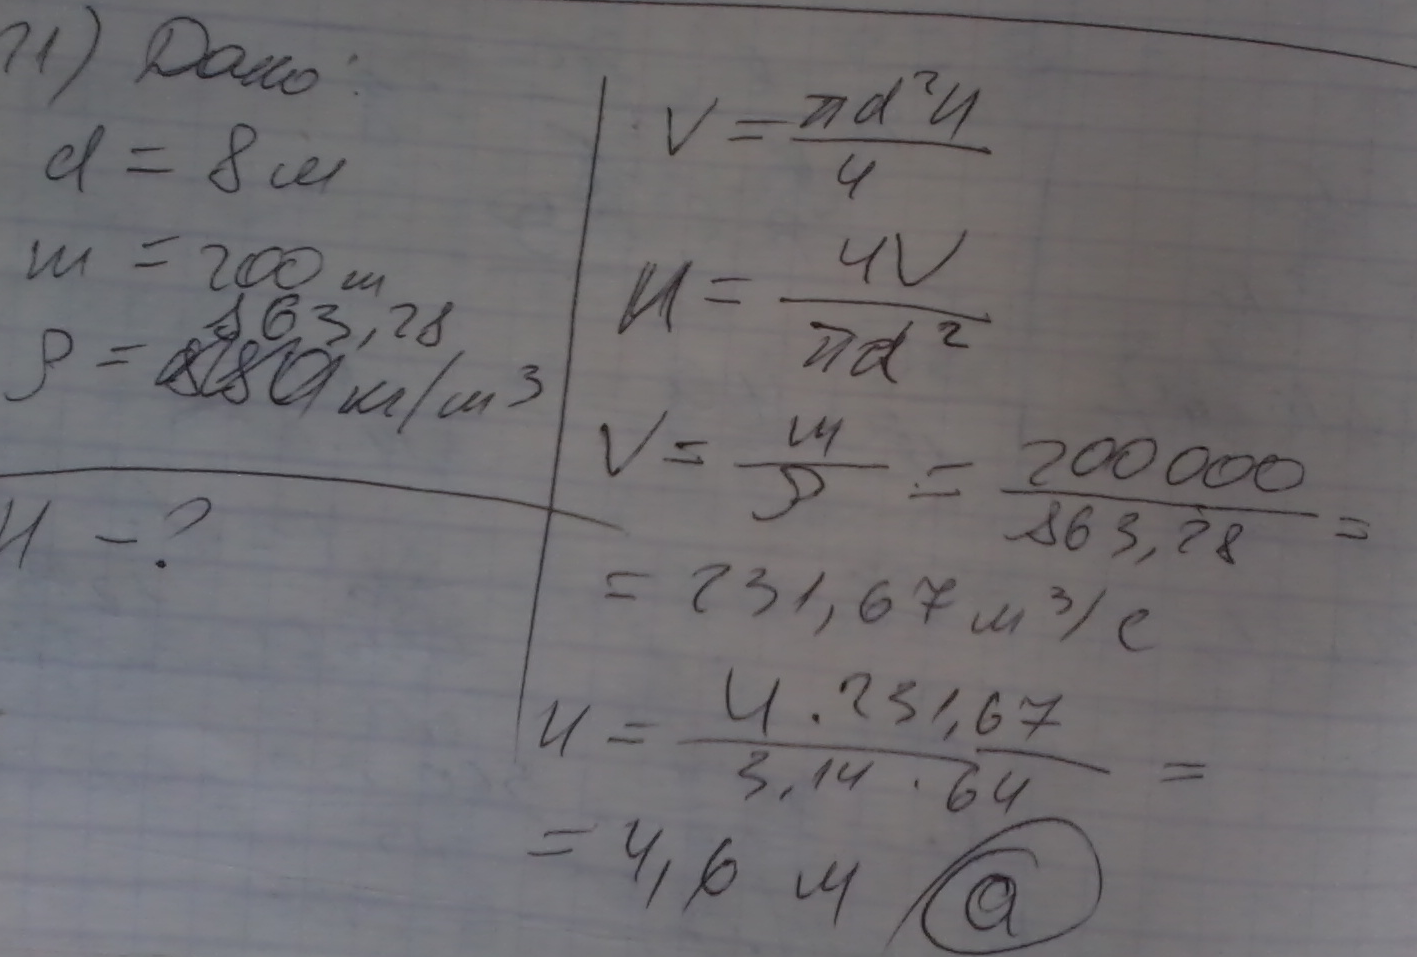 71) Дано:
d = 8 м
m = 200 т
863,28
ρ = кг/м³
H - ?
V = πd²H / 4
H = 4V / πd²
V = m / ρ = 200 000 / 863,28 =
= 231,67 м³/с
H = 4 · 231,67 / 3,14 · 64 =
= 4,6 м а